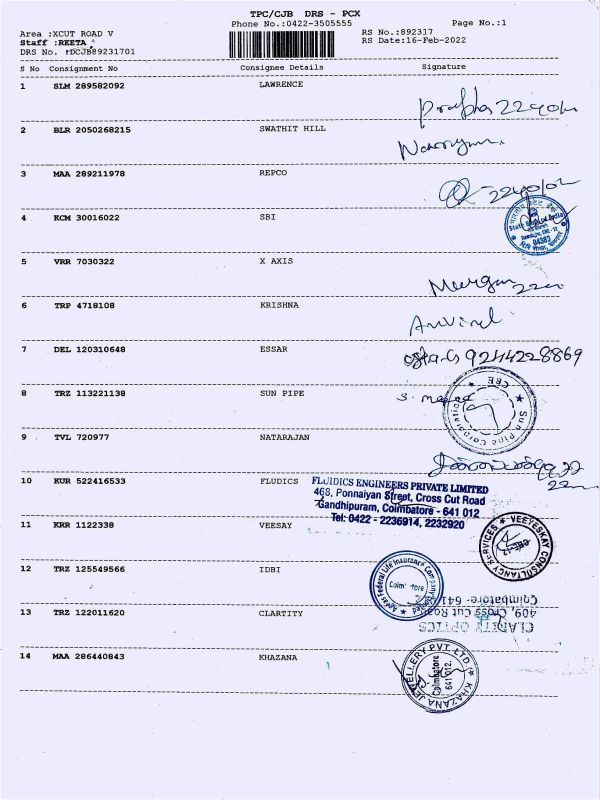 TPC/CJB DRS - PCX
Phone No.:0422-3505555
Page No.:1
Area :XCUT ROAD V
RS No.:892317
Staff :REETA
RS Date:16-Feb-2022
DRS No. :DCJB89231701
S No Consignment No Consignee Details Signature
1 SLM 289582092 LAWRENCE
Prabha 2240
2 BLR 2050268215 SWATHIT HILL
3 MAA 289211978 REPCO
4 KCM 30016022 SBI
State Bank of India
04303
5 VRR 7030322 X AXIS
Murgan
6 TRP 4718108 KRISHNA
Arvind
7 DEL 120310648 ESSAR
9244228869
8 TRZ 113221138 SUN PIPE
Sun Pipe Corporation
CBE
9 TVL 720977 NATARAJAN
10 KUR 522416533 FLUDICS
FLUIDICS ENGINEERS PRIVATE LIMITED
468, Ponnaiyan Street, Cross Cut Road
Gandhipuram, Coimbatore - 641 012
Tel: 0422 - 2236914, 2232920
11 KRR 1122338 VEESAY
VEEYESKAY CONSULTANCY SERVICES
CBE-12
12 TRZ 125549566 IDBI
Ageas Federal Life Insurance Company Limited
Coimbatore
13 TRZ 122011620 CLARTITY
CLARITY OPTICS
409, Cross Cut Road
Coimbatore- 641 012
14 MAA 286440843 KHAZANA
KHAZANA JEWELLERY PVT. LTD.
Coimbatore
641 012.